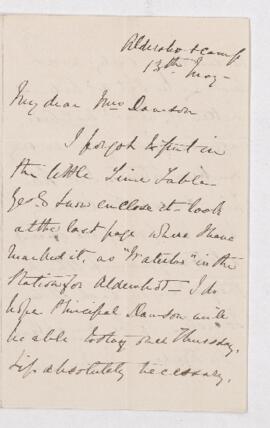 Aldershot Camp
13th May
My dear Mrs Dawson
I forgot to put in
the little Time Table
I now enclose it - look
at the last page where I have
marked it, as "Waterloo" is the
Station for Aldershot - I do
hope Principal Dawson will
be able to stay over Thursday,
if absolutely necessary.